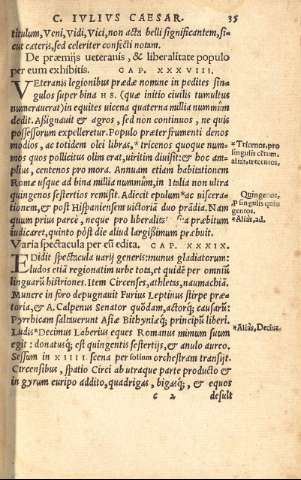 C. IVLIVS CAESAR. 35
titulum, Veni, Vidi, Vici, non acta belli significantem, si-
cut cæteris, sed celeriter confecti notam.
De præmijs ueteranis, & liberalitate populo
per eum exhibitis. CAP. XXXVIII.
VEteranis legionibus prædæ nomine in pedites sin-
gulos super bina HS. (quæ initio ciuilis tumultus
numerauerat) in equites uicena quaterna millia nummûm
dedit. Asignauit & agros, sed non continuos, ne quis
possessorum expelleretur. Populo præter frumenti denos
modios, ac totidem olei libras, *tricenos quoque num-
mos quos pollicitus olim erat, uiritim diuisit: & hoc am-
plius, centenos pro mora. Annuam etiam habitationem
Romæ usque ad bina millia nummûm, in Italia non ultra
quingenos sestertios remisit. Adiecit epulum *ac uiscera-
tionem, & post Hispaniensem uictoriã duo prãdia. Nam
quum prius parce, neque pro liberalitate sua præbitum
iudicaret, quinto pòst die aliud largissimum præbuit.
Varia spectacula per eũ edita. CAP. XXXIX.
EDidit spectacula uarij generis: munus gladiatorum:
ludos etiã regionatim urbe tota, et quidẽ per omniũ
linguarũ histriones. Item Circenses, athletas, naumachiã.
Munere in foro depugnauit Furius Leptinus stirpe præ-
toria, & A. Calpenus Senator quõdam, actorq́; causarũ:
Pyrrhicam saltauerunt Asiæ Bithyniæq́; principũ liberi.
Ludis *Decimus Laberius eques Romanus mimum suum
egit: donatusq́; est quingentis sestertijs, & anulo aureo.
Sessum in XIIII. scena per solium orchestram transijt.
Circensibus, spatio Circi ab utraque parte producto &
in gyrum euripo addito, quadrigas, bigasq́;, & equos
c 2 desult
*Tricenos, pro
singulis
Quingenos.
*Aliàs, ad.
*Aliàs, Decius.